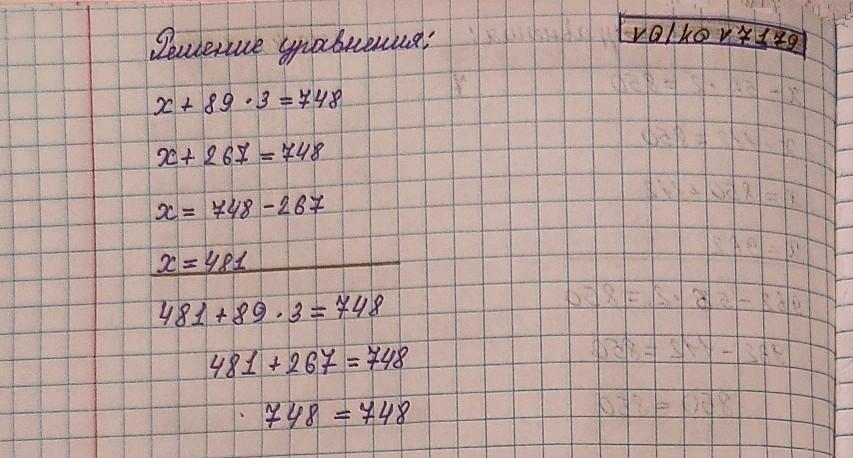 Решение уравнения:
x + 89 · 3 = 748
x + 267 = 748
x = 748 - 267
x = 481
481 + 89 · 3 = 748
481 + 267 = 748
748 = 748